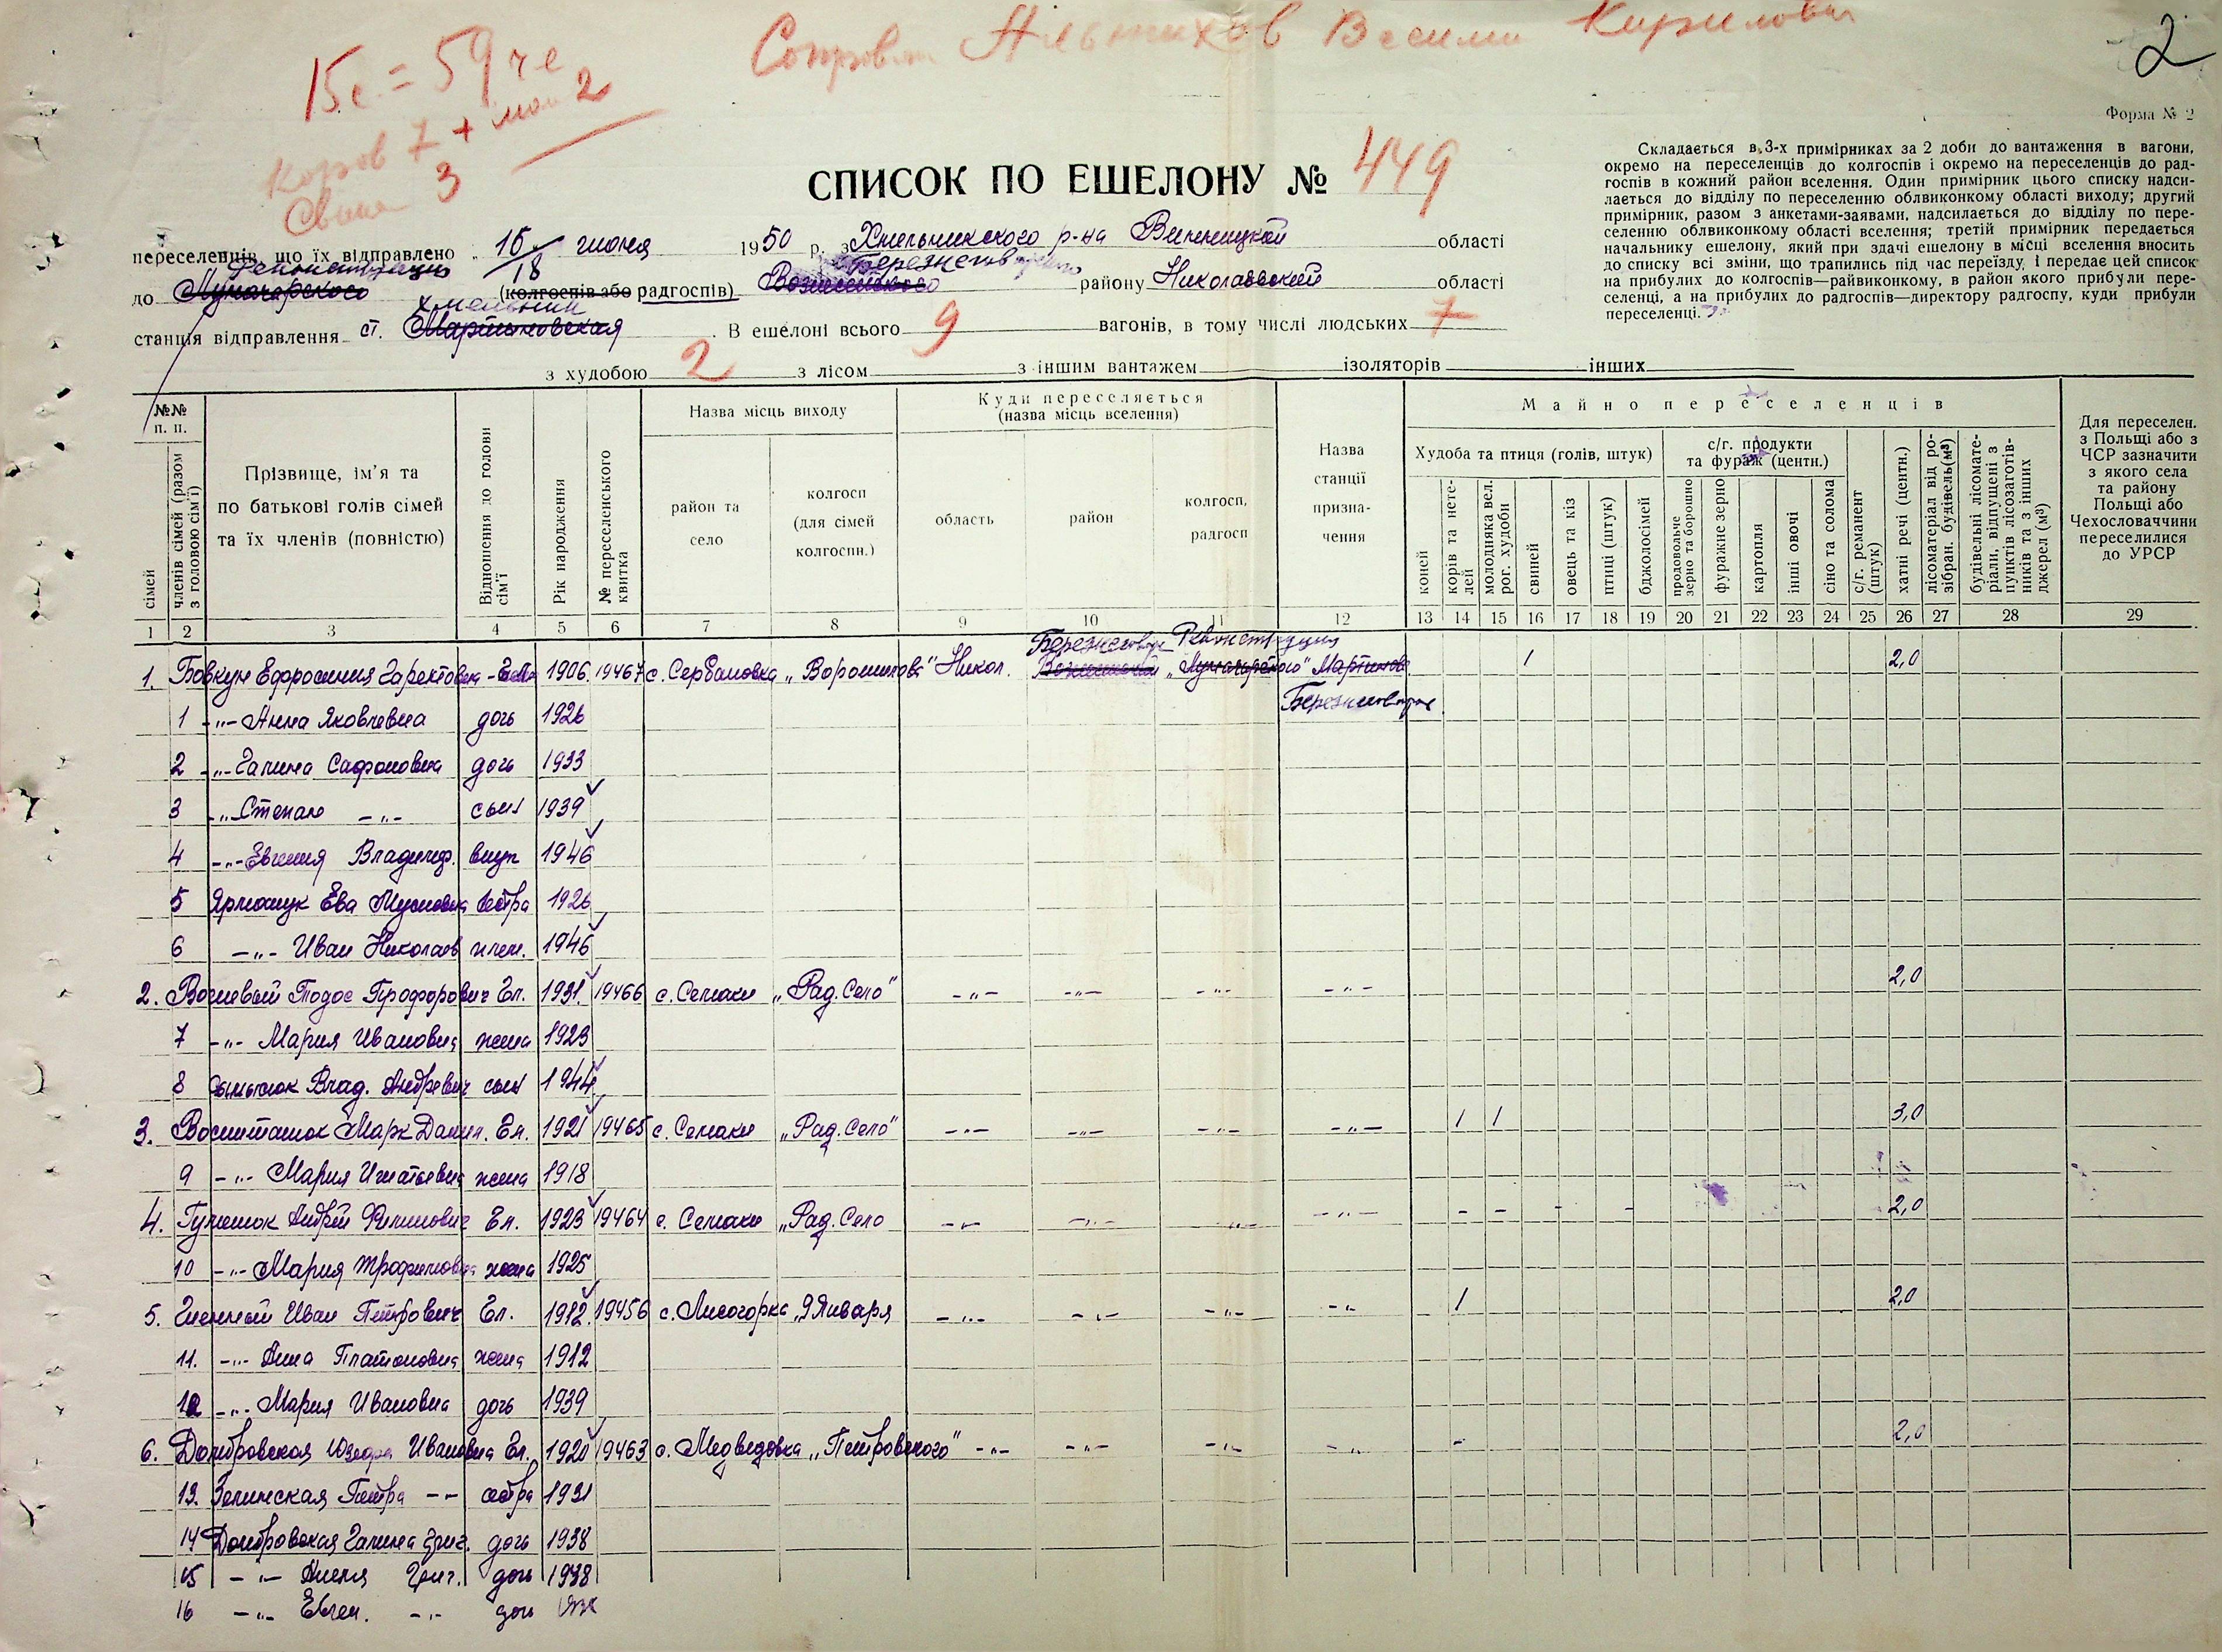 15 с. = 59 че
Коров 7 + мол 2
Свиней 3
Сопровож Альтихов Васили Кирилович
2
Форма № 2
Складається в 3-х примірниках за 2 доби до вантаження в вагони,
окремо на переселенців до колгоспів і окремо на переселенців до рад-
госпів в кожний район вселення. Один примірник цього списку надси-
лається до відділу по переселенню облвиконкому області виходу; другий
примірник, разом з анкетами-заявами, надсилається до відділу по пере-
селенню облвиконкому області вселення; третій примірник передається
начальнику ешелону, який при здачі ешелону в місці вселення вносить
до списку всі зміни, що трапились під час переїзду, і передає цей список
на прибулих до колгоспів—райвиконкому, в район якого прибули пере-
селенці, а на прибулих до радгоспів—директору радгоспу, куди прибули
переселенці.
СПИСОК ПО ЕШЕЛОНУ № 449
переселенців, що їх відправлено „ 15/18 июня 1950 р. з Хмельникского р-на Винницкой області
Реконструкция Березнеговатского
до Луначарского (колгоспів або радгоспів) Вознесенского району Николаевской області
Хмельник
станція відправлення ст. Мартыновская. В ешелоні всього 9 вагонів, в тому числі людських 7
з худобою 2 з лісом з іншим вантажем ізоляторів інших
№№ п. п.
сімей
членів сімей (разом з головою сім'ї)
Прізвище, ім'я та по батькові голів сімей та їх членів (повністю)
Відношення до голови сім'ї
Рік народження
№ переселенського квитка
Назва місць виходу
район та село
колгосп (для сімей колгоспн.)
Куди переселяється (назва місць вселення)
область
район
колгосп, радгосп
Назва станції призна- чення
Майно переселенців
Худоба та птиця (голів, штук)
коней
корів та нете- лей
молодняка вел. рог. худоби
свиней
овець та кіз
птиці (штук)
бджолосімей
с/г. продукти та фураж (центн.)
продовольче зерно та борошно
фуражне зерно
картопля
інші овочі
сіно та солома
с/г. реманент (штук)
хатні речі (центн.)
лісоматеріал від ро- зібран. будівель (м³)
будівельні лісомате- ріали, відпущені з пунктів лісозаготів- ників та з інших джерел (м³)
Для переселен. з Польщі або з ЧСР зазначити з якого села та району Польщі або Чехословаччини переселилися до УРСР
1 2 3 4 5 6 7 8 9 10 11 12 13 14 15 16 17 18 19 20 21 22 23 24 25 26 27 28 29
Березнегов Реконструкция
1. Бовкун Ефросиния 1906 19467 с. Сербановка „Ворошилова" Никол. Вознесенский „Луначарского" Мартынов 1 2,0
1 -„- Анна Яковлевна дочь 1926 Березнеговатое
2 -„- Галина Сафроновна дочь 1933
3 -„- Степан -„- сын 1939
4 -„- Евгения Владимир. внук 1946
5 Ярмощук Ева сестра 1926
6 -„- Иван Николаев плем. 1946
2. Тодос Трофорович Гл. 1931 19466 с. Семаки „Рад. Село" -„- -„- -„- -„- 2,0
7 -„- Мария Ивановна жена 1923
8 Влад. Андреевич сын 1944
3. Марк Данил. Гл. 1921 19465 с. Семаки „Рад. Село" -„- -„- -„- -„- 1 1 3,0
9 -„- Мария Игнатьевна жена 1918
4. Андрей Филипович Гл. 1923 19464 с. Семаки „Рад. Село -„- -„- -„- -„- - - - - 2,0
10 -„- Мария Трофимовна жена 1925
5. Иван Петрович Гл. 1912 19456 с. Лисогорка „9 Января -„- -„- -„- -„- 1 2,0
11. -„- Анна Платоновна жена 1912
12 -„- Мария Ивановна дочь 1939
6. Домбровская Юзефа Ивановна Гл. 1920 19463 с. Медведовка „Петровского" -„- -„- -„- -„- - 2,0
13. Зелинская Петра -„- сестра 1931
14 Домбровская Галина Григ. дочь 1938
15 -„- Григ. дочь 1938
16 -„- Евген. -„- дочь